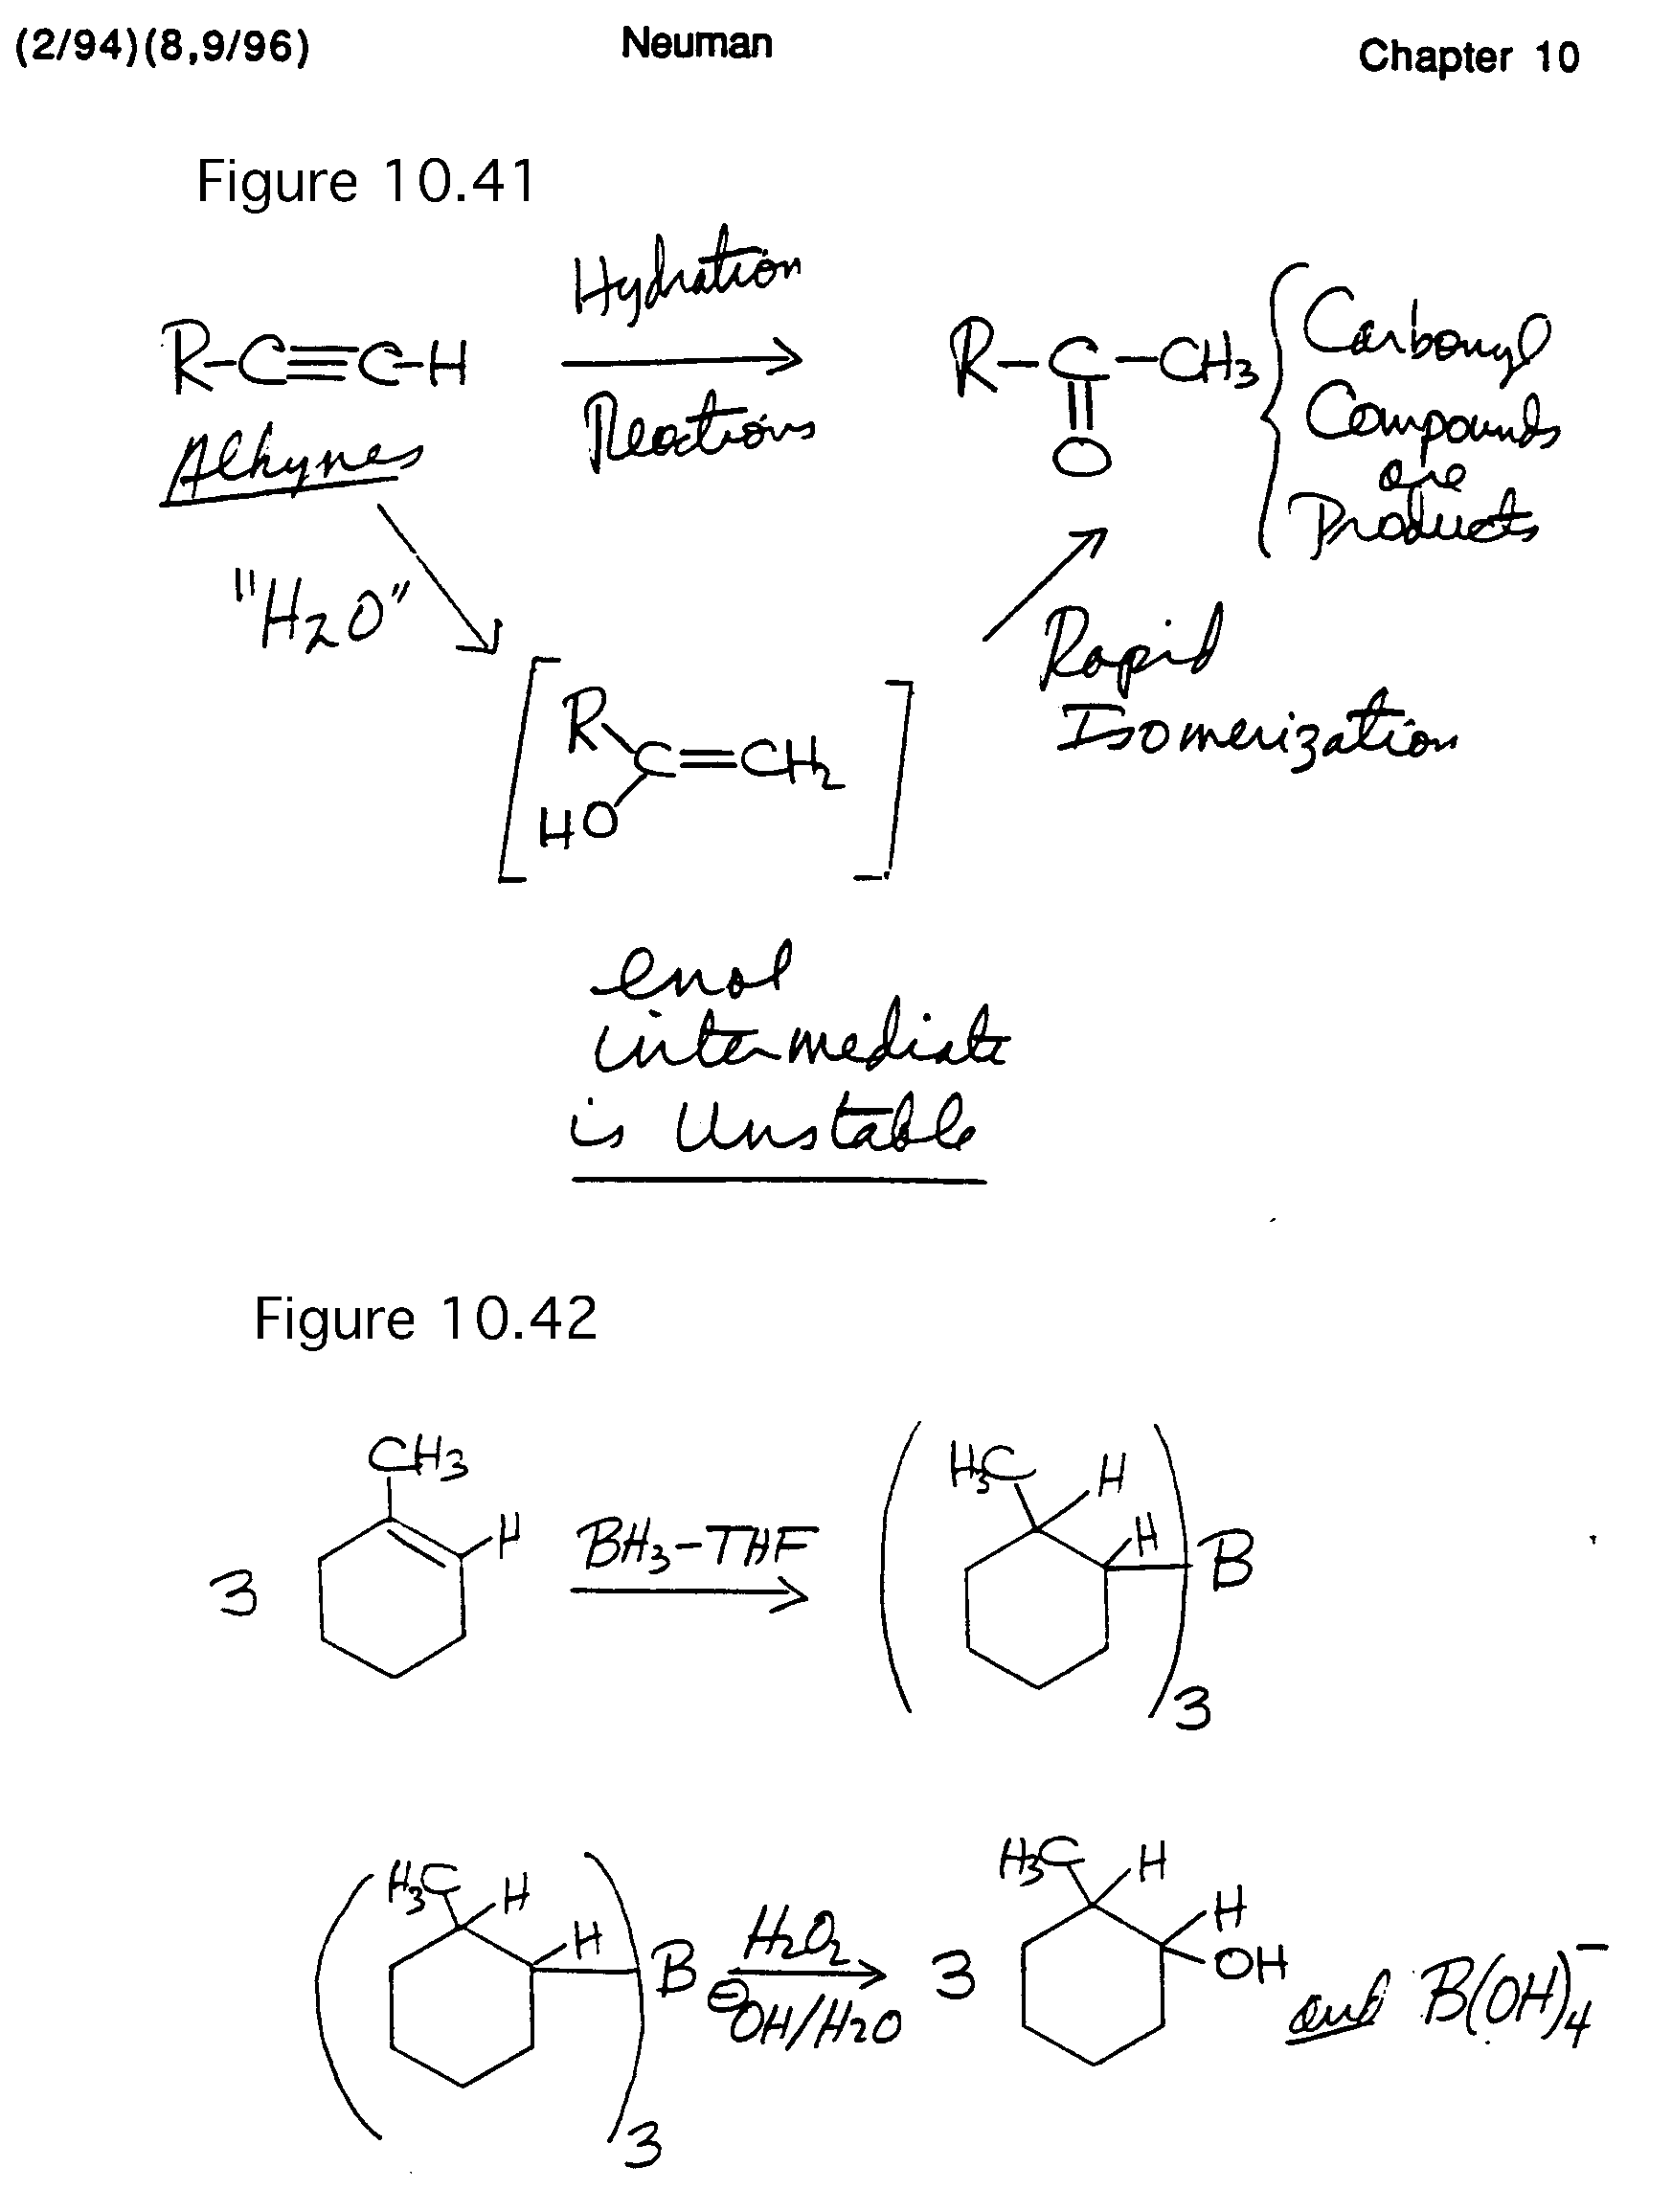 (2/94)(8,9/96) Neuman Chapter 10
Figure 10.41
Hydration
R-C≡C-H
Reactions
Alkynes
R-C-CH3
O
Carbonyl
Compounds
are
Products
"H2O"
R
C=CH2
HO
Rapid
Isomerization
enol
intermediate
is Unstable
Figure 10.42
CH3
H
3
BH3-THF
H3C
H
H
B
3
H3C
H
H
B
3
H2O2
⊖OH/H2O
3
H3C
H
H
OH
and B(OH)4−